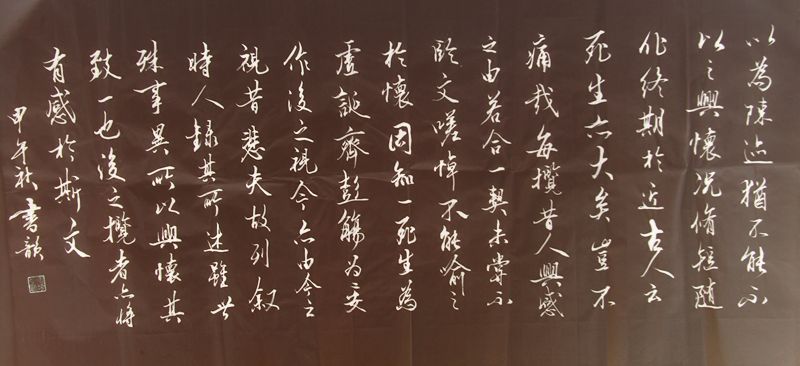 以為陳迹猶不能不
以之興懷况脩短隨
化終期於近古人云
死生亦大矣豈不
痛哉每攬昔人興感
之由若合一契未嘗不
臨文嗟悼不能喻之
於懷固知一死生為
虛誕齊彭觴為妄
作後之視今亦由今之
視昔悲夫故列叙
時人錄其所述雖世
殊事異所以興懷其
致一也後之攬者亦將
有感於斯文
甲午秋書韻